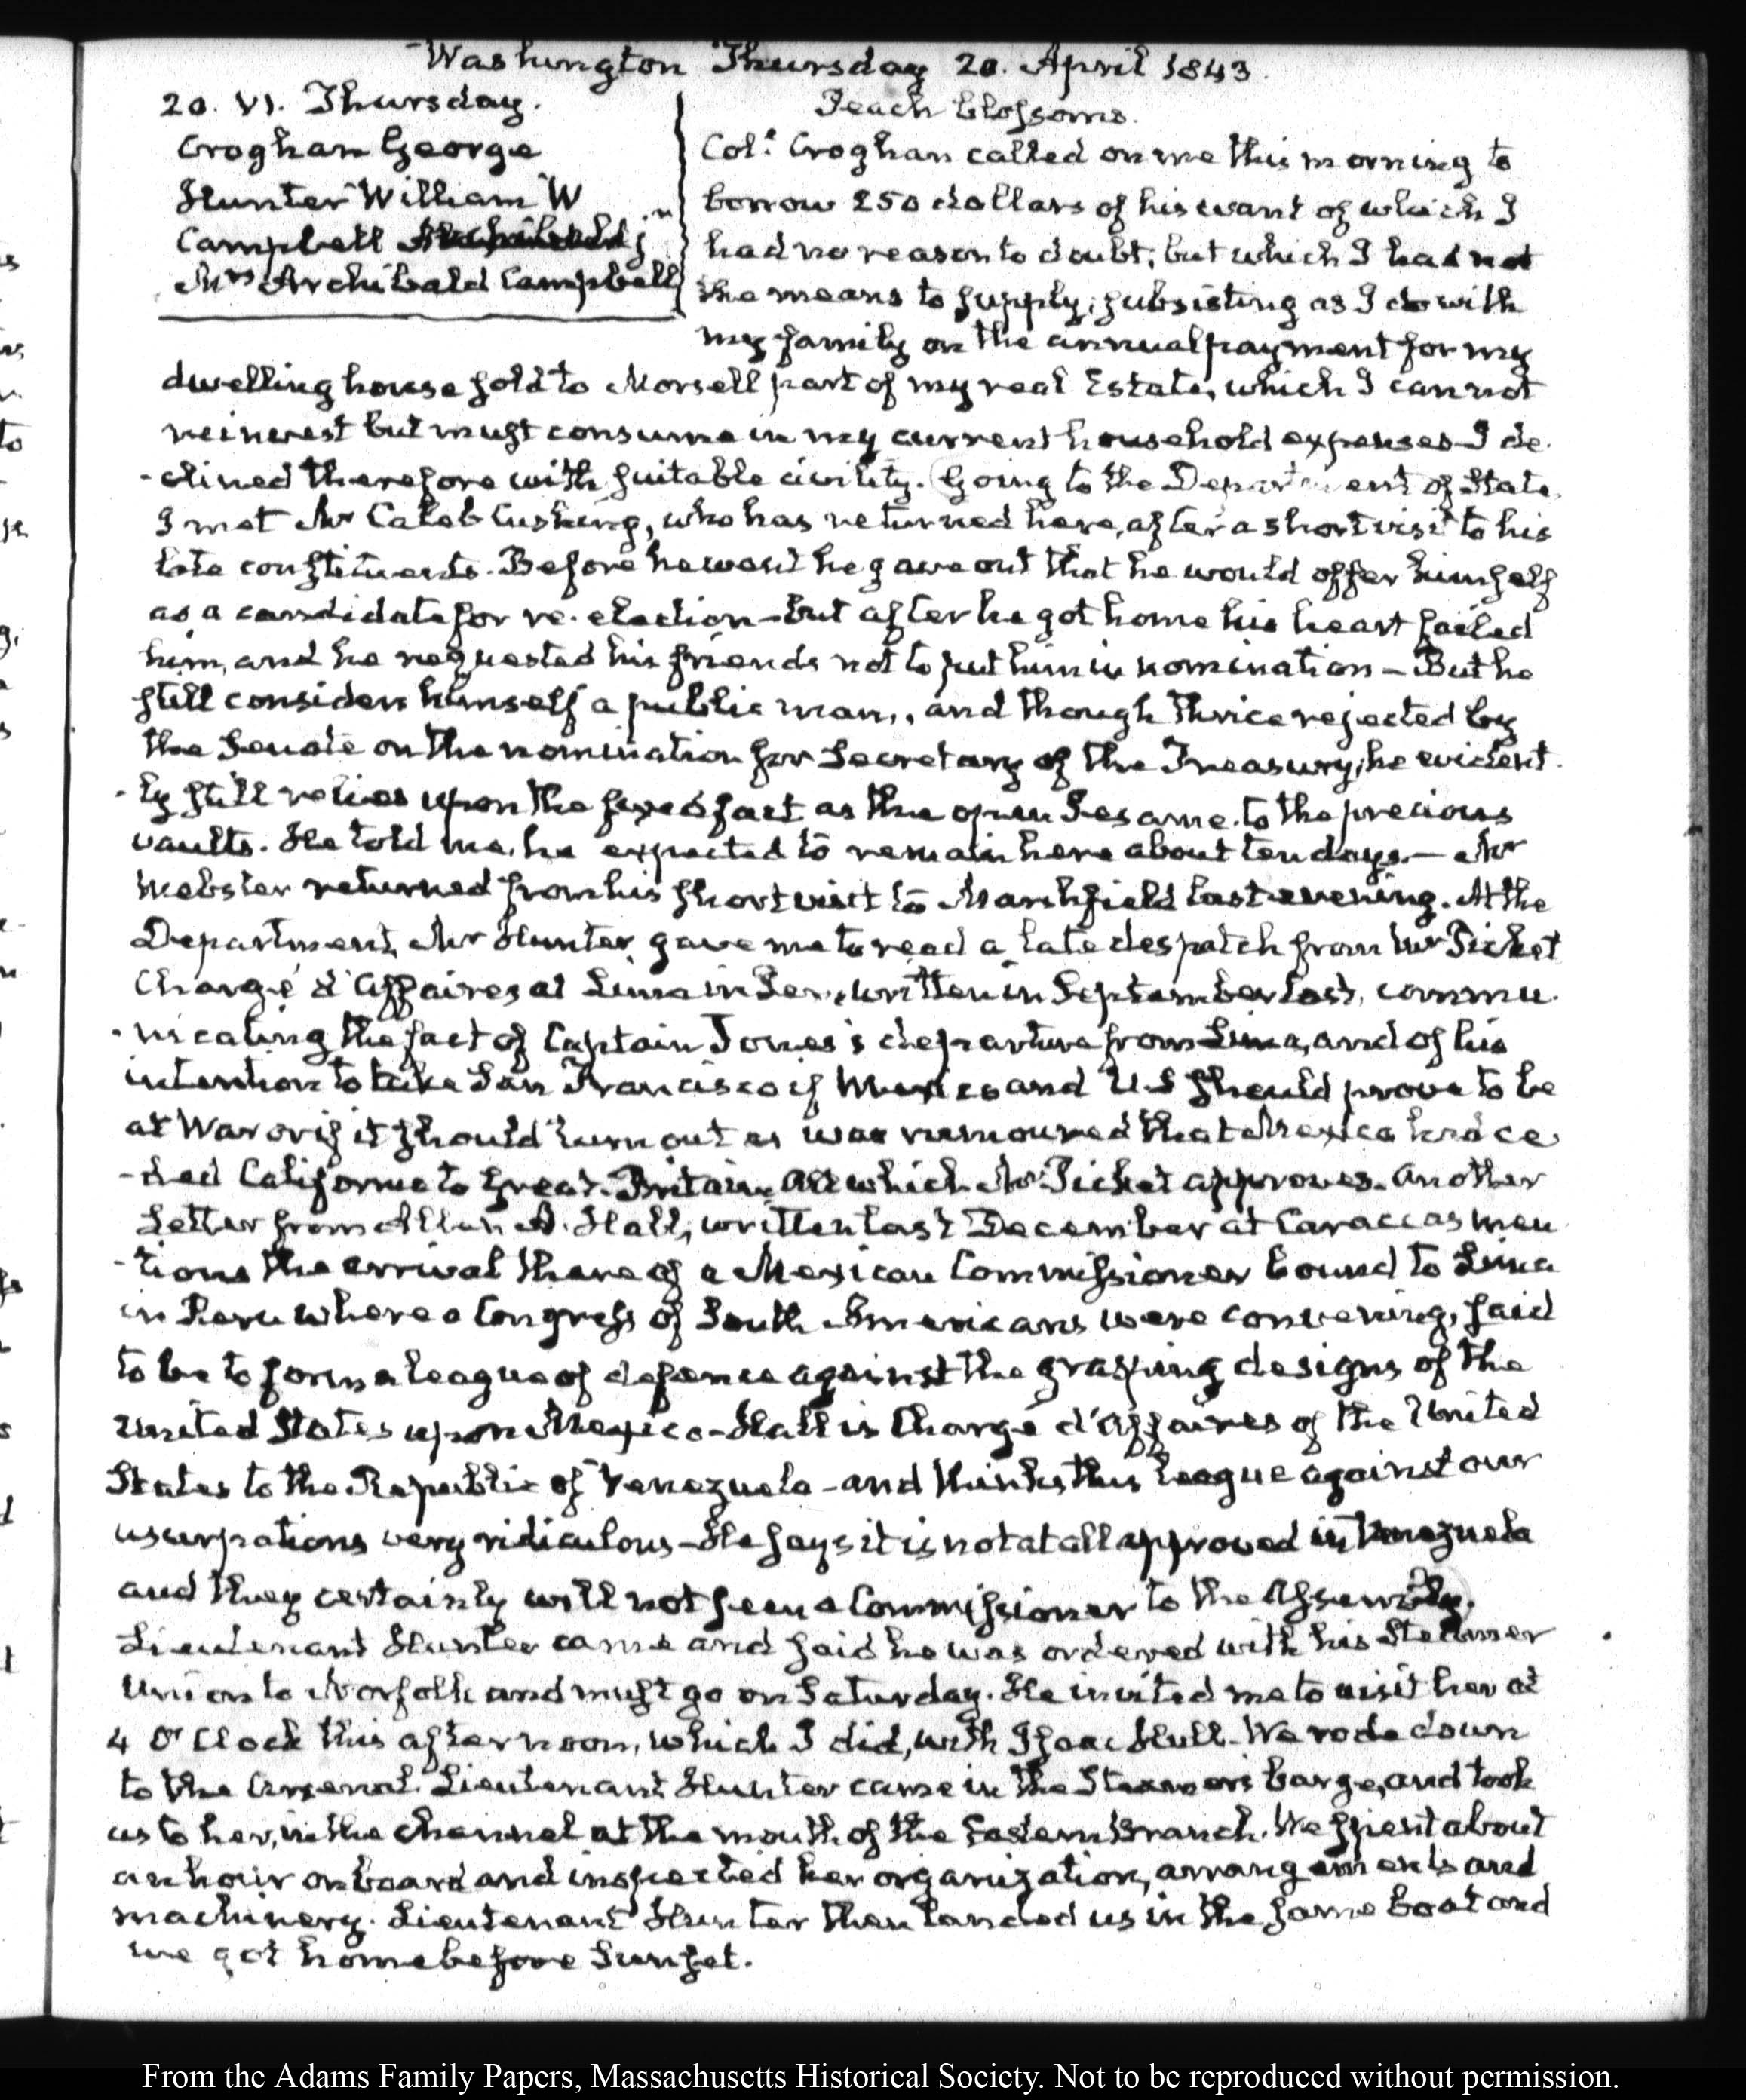 Washington Thursday 20. April 1843.
20. VI. Thursday.
Croghan George
Hunter William W
Campbell
Mrs Archibald Campbell
Peach blossoms.
Coll. Croghan called on me this morning to
borrow 250 dollars of his want of which I
had no reason to doubt, but which I had not
the means to supply, subsisting as I do with
my family on the annual payment for my
dwelling house sold to Morsell part of my real Estate, which I cannot
reinvest but must consume in my current household expenses. I de-
-clined therefore with suitable civility. Going to the Department of State
I met Mr Caleb Cushing, who has returned here, after a short visit to his
late constituents. Before he went he gave out that he would offer himself
as a candidate for re-election—but after he got home his heart failed
him, and he requested his friends not to put him in nomination—But he
still considers himself a public man, and though thrice rejected by
the Senate on the nomination for Secretary of the Treasury, he evident-
-ly still relies upon the fixed fact as the open Sesame to the precious
vaults. He told me he expected to remain here about ten days.—Mr
Webster returned from his short visit to Marshfield last evening. At the
Department, Mr Hunter gave me to read a late despatch from Mr Picket
Chargé d'Affaires at Lima in Peru, written in September last, commu-
-nicating the fact of Captain Jones's departure from Lima, and of his
intention to take San Francisco if Mexico and U.S should prove to be
at War or if it should turn out as was rumoured that Mexico had ce-
-ded California to Great-Britain. All which Mr Picket approves. Another
Letter from Allen A. Hall, written last December at Caraccas men-
-tions the arrival there of a Mexican Commissioner bound to Lima
in Peru where a Congress of South Americans were convening, said
to be to form a league of defence against the grasping designs of the
United States upon Mexico—Hall is Chargé d'Affaires of the United
States to the Republic of Venezuela—and thinks this league against our
usurpations very ridiculous—He says it is not at all approved in Venezuela
and they certainly will not send a Commissioner to the Assembly.
Lieutenant Hunter came and said he was ordered with his Steamer
Union to Norfolk and must go on Saturday. He invited me to visit her at
4 O'Clock this afternoon, which I did, with Isaac Hull. We rode down
to the Arsenal. Lieutenant Hunter came in the Steamer's barge, and took
us to her, in the channel at the mouth of the Eastern Branch. We spent about
an hour on board and inspected her organization, arrangements and
machinery. Lieutenant Hunter then landed us in the same boat and
we got home before Sunset.
From the Adams Family Papers, Massachusetts Historical Society. Not to be reproduced without permission.